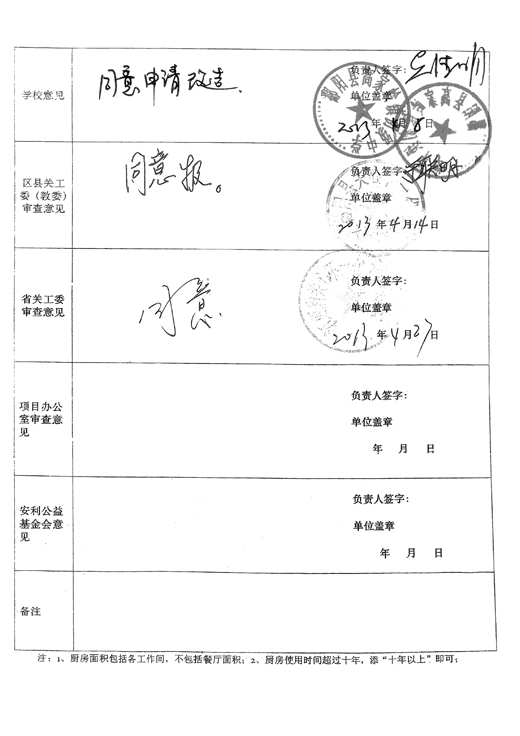 学校意见
同意申请改造.
负责人签字:
单位盖章
2013年 月8日
区县关工
委（教委）
审查意见
同意报。
负责人签字:
单位盖章
2013年4月14日
省关工委
审查意见
同意.
负责人签字:
单位盖章
2013.年4月27日
项目办公
室审查意
见
负责人签字:
单位盖章
年 月 日
安利公益
基金会意
见
负责人签字:
单位盖章
年 月 日
备注
注: 1、厨房面积包括各工作间, 不包括餐厅面积; 2、厨房使用时间超过十年, 添“十年以上”即可;